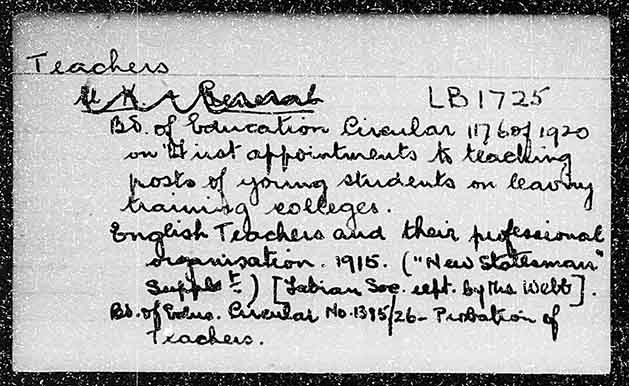 Teachers
U.K. - General LB1725
Bd. of Education Circular 1176 of 1920
on "First appointments to teaching
posts of young students on leaving
training colleges.
English Teachers and their professional
organisation. 1915. ("New Statesman"
Supplt.) [Fabian Soc. rept. by Mrs Webb].
Bd. of Educ. Circular No. 1385/26 - Probation of
Teachers.